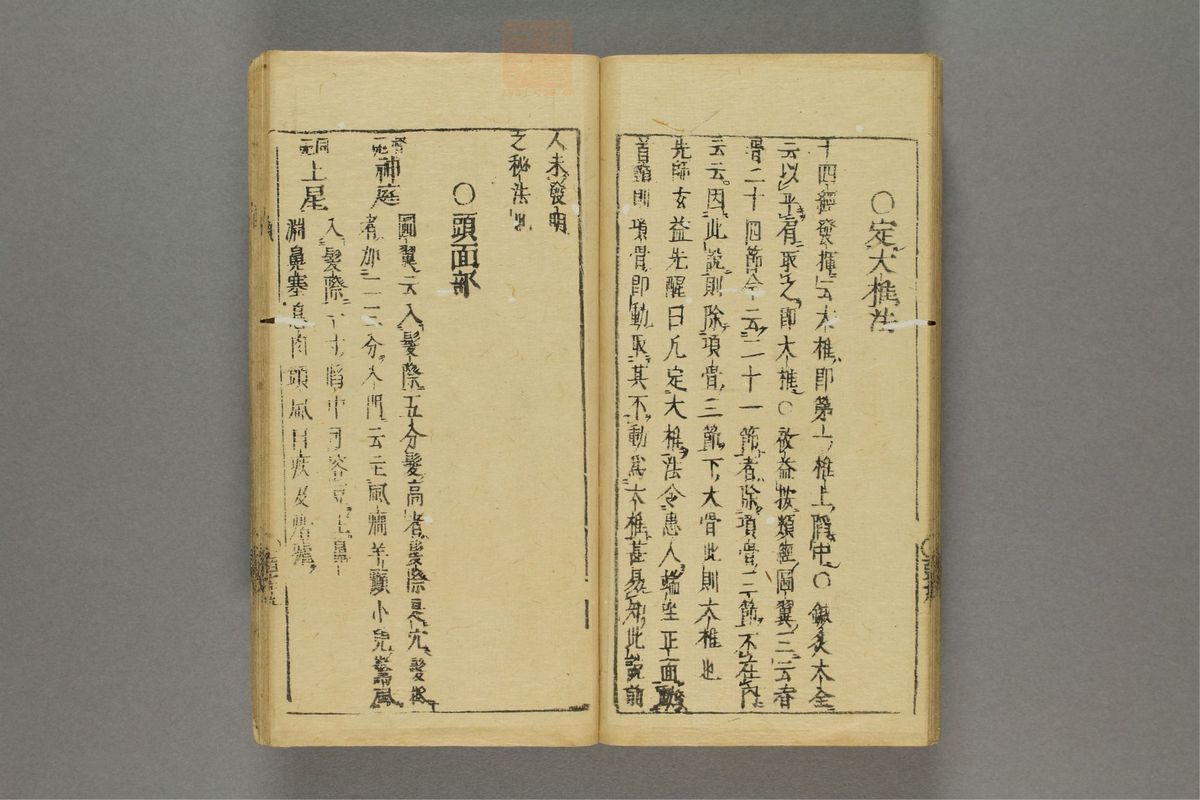 ○定大椎法
十四經發揮云大椎即第一椎上陷中○鍼灸大全
云以平肩取之即大椎○啟益按類經圖翼三云脊
骨二十四節今云二十一節者除項骨三節不在內
云云因此說則除項骨三節下大骨此則大椎也
先師玄益先醒曰凡定大椎法令患人端坐正面動
首頭則項骨即動取其不動為大椎甚易知此說前
人未發明
之秘法也
○頭面部
督一穴
神庭
圖翼云入髮際五分髮高者髮際是穴髮低
者加二三分入門云主風癇羊癲小兒驚風
同一穴
上星
入髮際一寸陷中同容豆主鼻
淵鼻塞息肉頭風目疾及